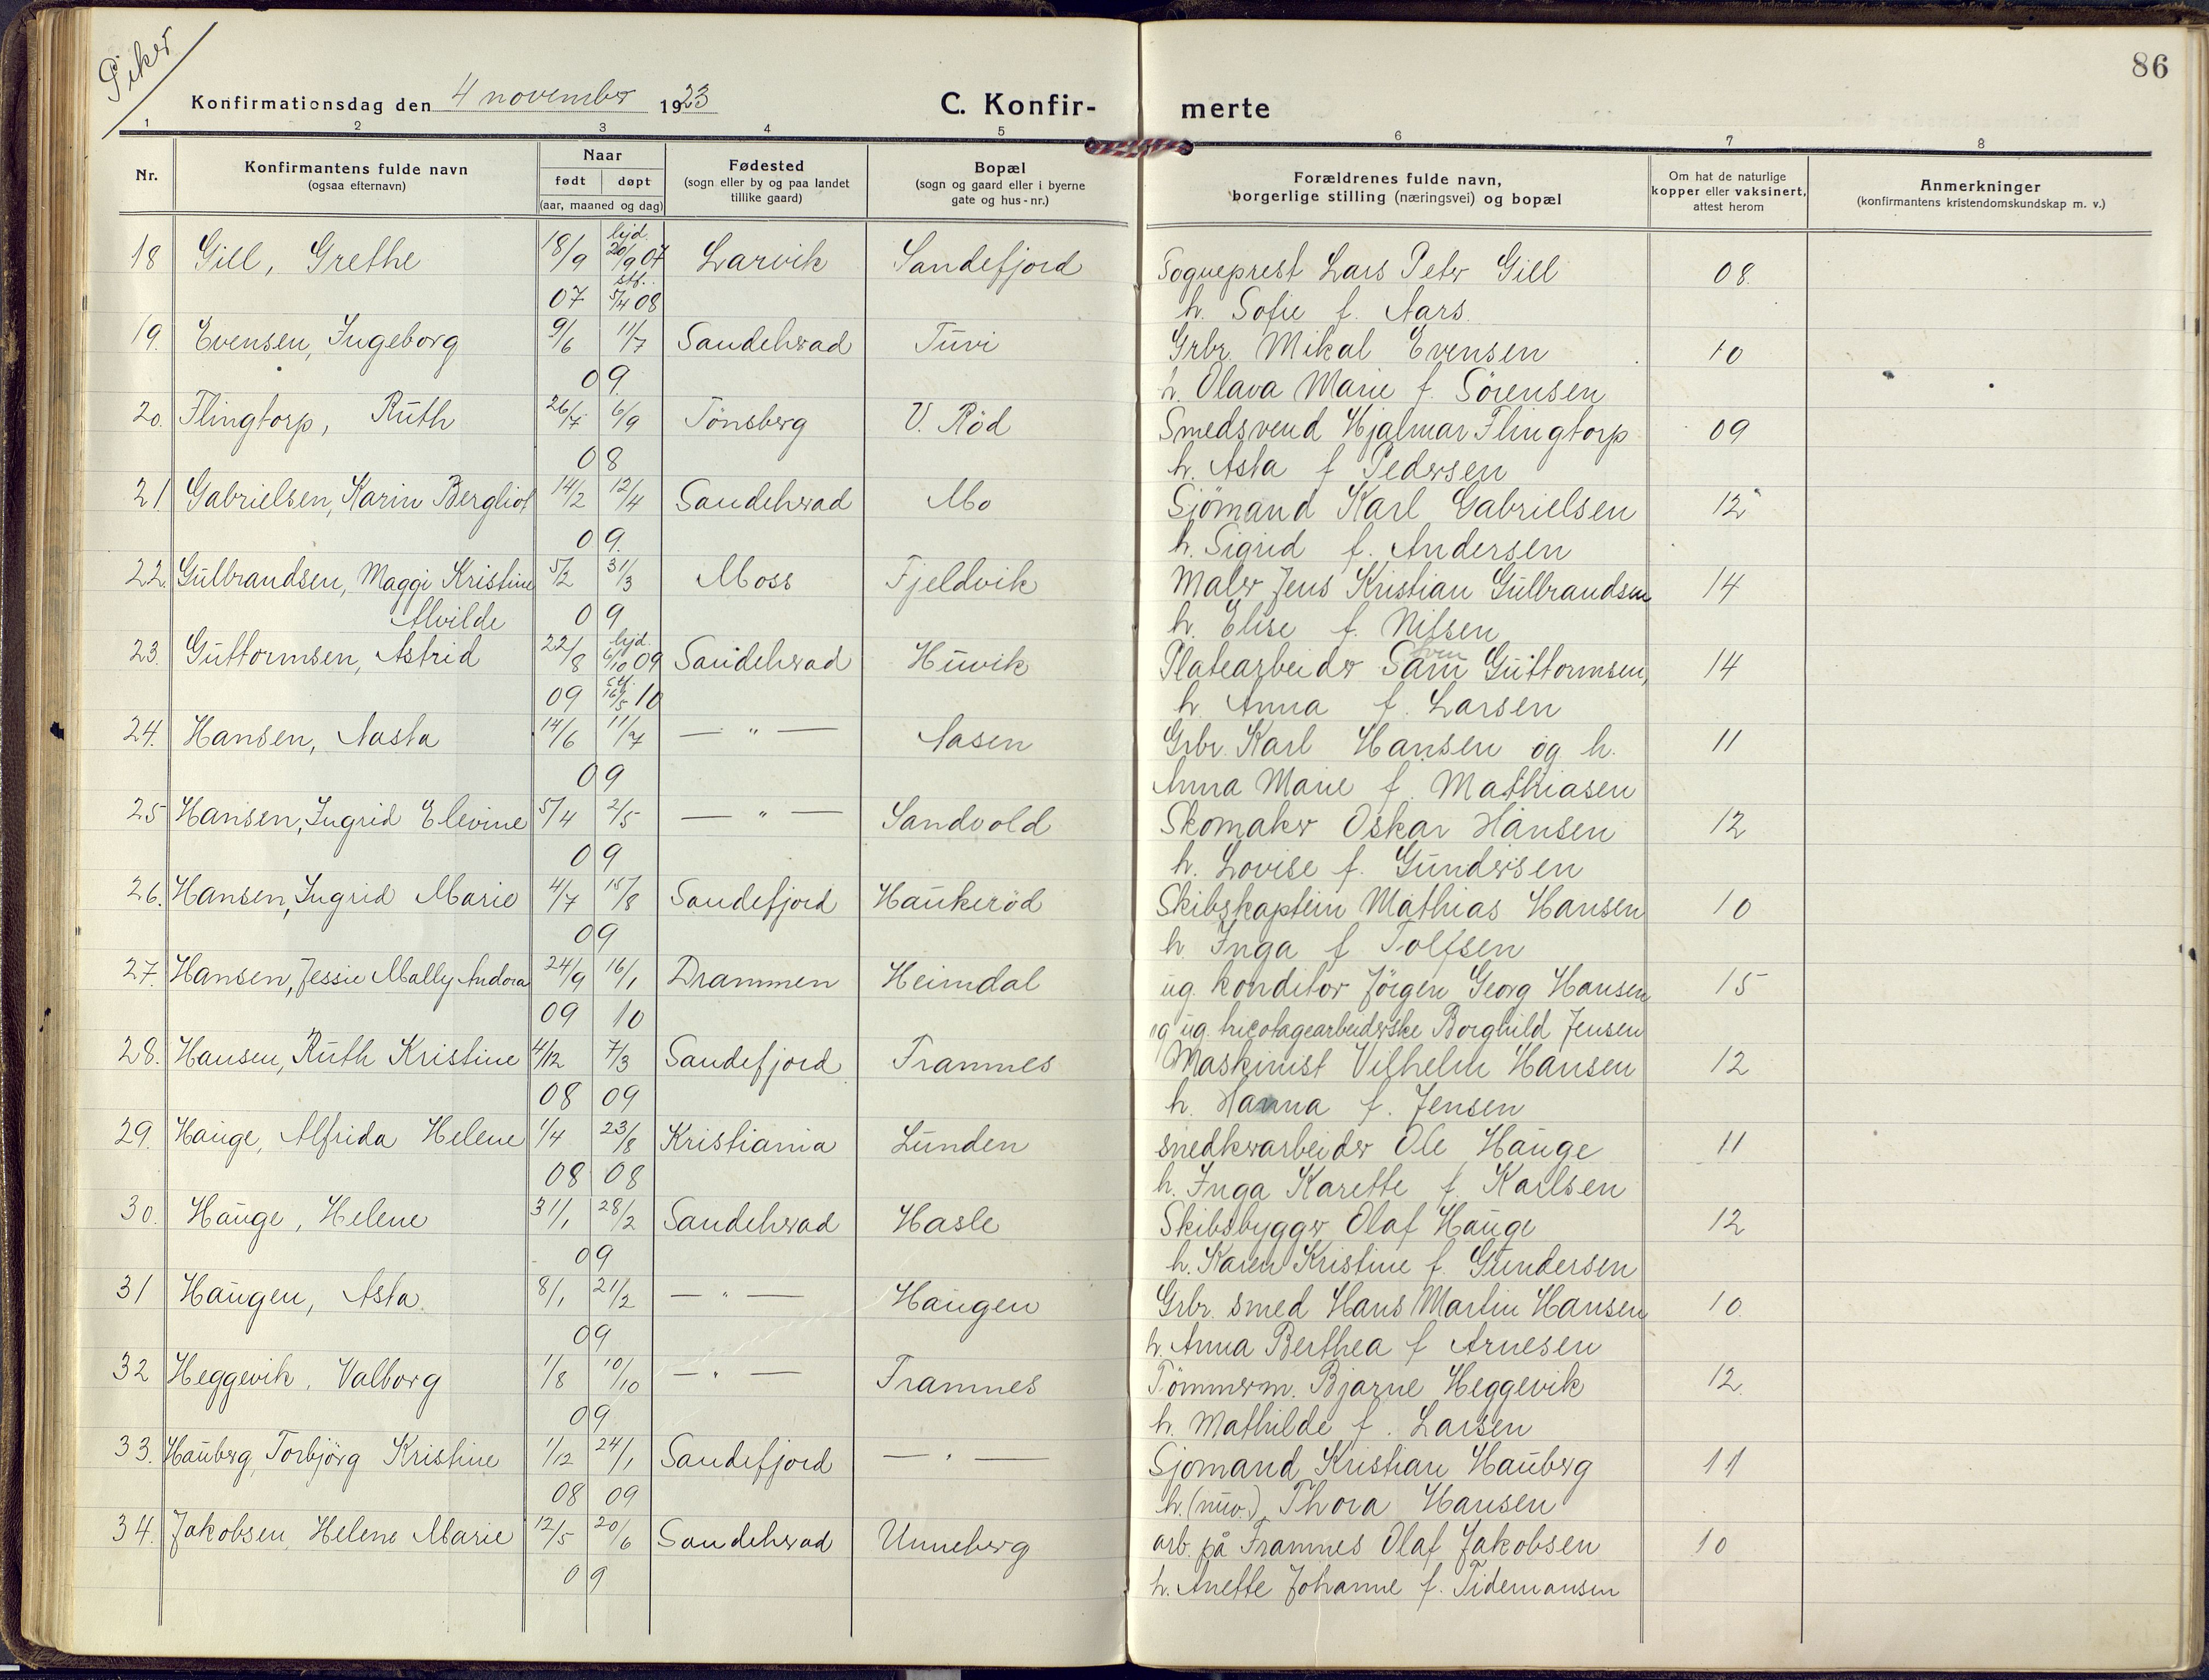 Piker
86
Konfirmationsdag den 4 november 1923 C. Konfir- merte
1 2 3 4 5 6 7 8
Nr. Konfirmantens fulde navn (ogsaa efternavn) Naar født døpt (aar, maaned og dag) Fødested (sogn eller by og paa landet tillike gaard) Bopæl (sogn og gaard eller i byerne gate og hus-nr.) Forældrenes fulde navn, borgerlige stilling (næringsvei) og bopæl Om hat de naturlige kopper eller vaksinert, attest herom Anmerkninger (konfirmantens kristendomskundskap m. v.)
18 Gill, Grethe 18/9 hjd. 20/9 07 Larvik Sandefjord Sogneprest Lars Peter Gill 08.
07 stf. 5/4 08 h. Sofie f. Aars.
19. Evensen, Ingeborg 9/6 11/7 Sandeherad Tuvi Grbr. Mikal Evensen 10
09. h. Olava Marie f. Sørensen
20. Flingtorp, Ruth 26/7 6/9 Tönsberg V. Röd Smedsvend Hjalmar Flingtorp 09
08 h. Asta f Pedersen
21 Gabrielsen, Karin Bergliot 14/2 12/4 Sandeherad Mo Sjömand Karl Gabrielsen 12
09. h. Sigrid f. Andersen
22. Gulbrandsen, Maggi Kristine 5/2 31/3 Moss Fjeldvik Maler Jens Kristian Gulbrandsen 14
Alvilde 09 h. Elise f. Nilsen
23. Guttormsen, Astrid 22/8 hjd. 6/10 09 Sandeherad Huvik Platearbeider Guttormsen, 14
09 stf. 16/5 10 h. Anna f. Larsen
24. Hansen, Aasta 14/6 11/7 — " — Aasen Grbr. Karl Hansen og h. 11
09 Anna Marie f. Mathiasen
25 Hansen, Ingrid Elevine 5/4 2/5 — " — Sandvold Skomaker Oskar Hansen 12
09 h. Lovise f. Gundersen
26. Hansen, Ingrid Marie 4/7 15/8 Sandefjord Haukeröd Skibskaptein Mathias Hansen 10
09 h. Inga f Tolfsen
27. Hansen, Jessie Mally Andora 24/9 16/1 Drammen Heimdal ug. konditor Jörgen Georg Hansen 15
09 10 og ug. tricotagearbeiderske Borghild Jensen
28. Hansen, Ruth Kristine 4/12 7/3 Sandefjord Framnes Maskinist Vilhelm Hansen 12
08 09 h. Hanna f. Jensen
29. Hauge, Alfrida Helene 1/4 23/8 Kristiania Lunden snedkerarbeider Ole Hauge 11
08 08 h. Inga Karette f. Karlsen
30. Hauge, Helene 31/1 28/2 Sandeherad Hasle Skibsbygger Olaf Hauge 12
09 h. Karen Kristine f. Gundersen
31 Haugen, Asta. 8/1 21/2 — " — Haugen Grbr. smed Hans Martin Hansen 10.
09 h. Anna Berthea f Arnesen
32 Heggevik, Valborg 1/8 10/10 — " — Framnes Tömmerm. Bjarne Heggevik 12.
09 h. Mathilde f. Larsen
33. Hauberg, Torbjörg Kristine 1/12 24/1 Sandefjord — " — Sjomand Kristian Hauberg 11
08 09 h. (nuv.) Thora Hansen
34. Jakobsen, Helene Marie 12/5 20/6 Sandeherad Unneberg arb. på Framnes Olaf Jakobsen 10
09 h. Anette Johanne f. Tidemansen